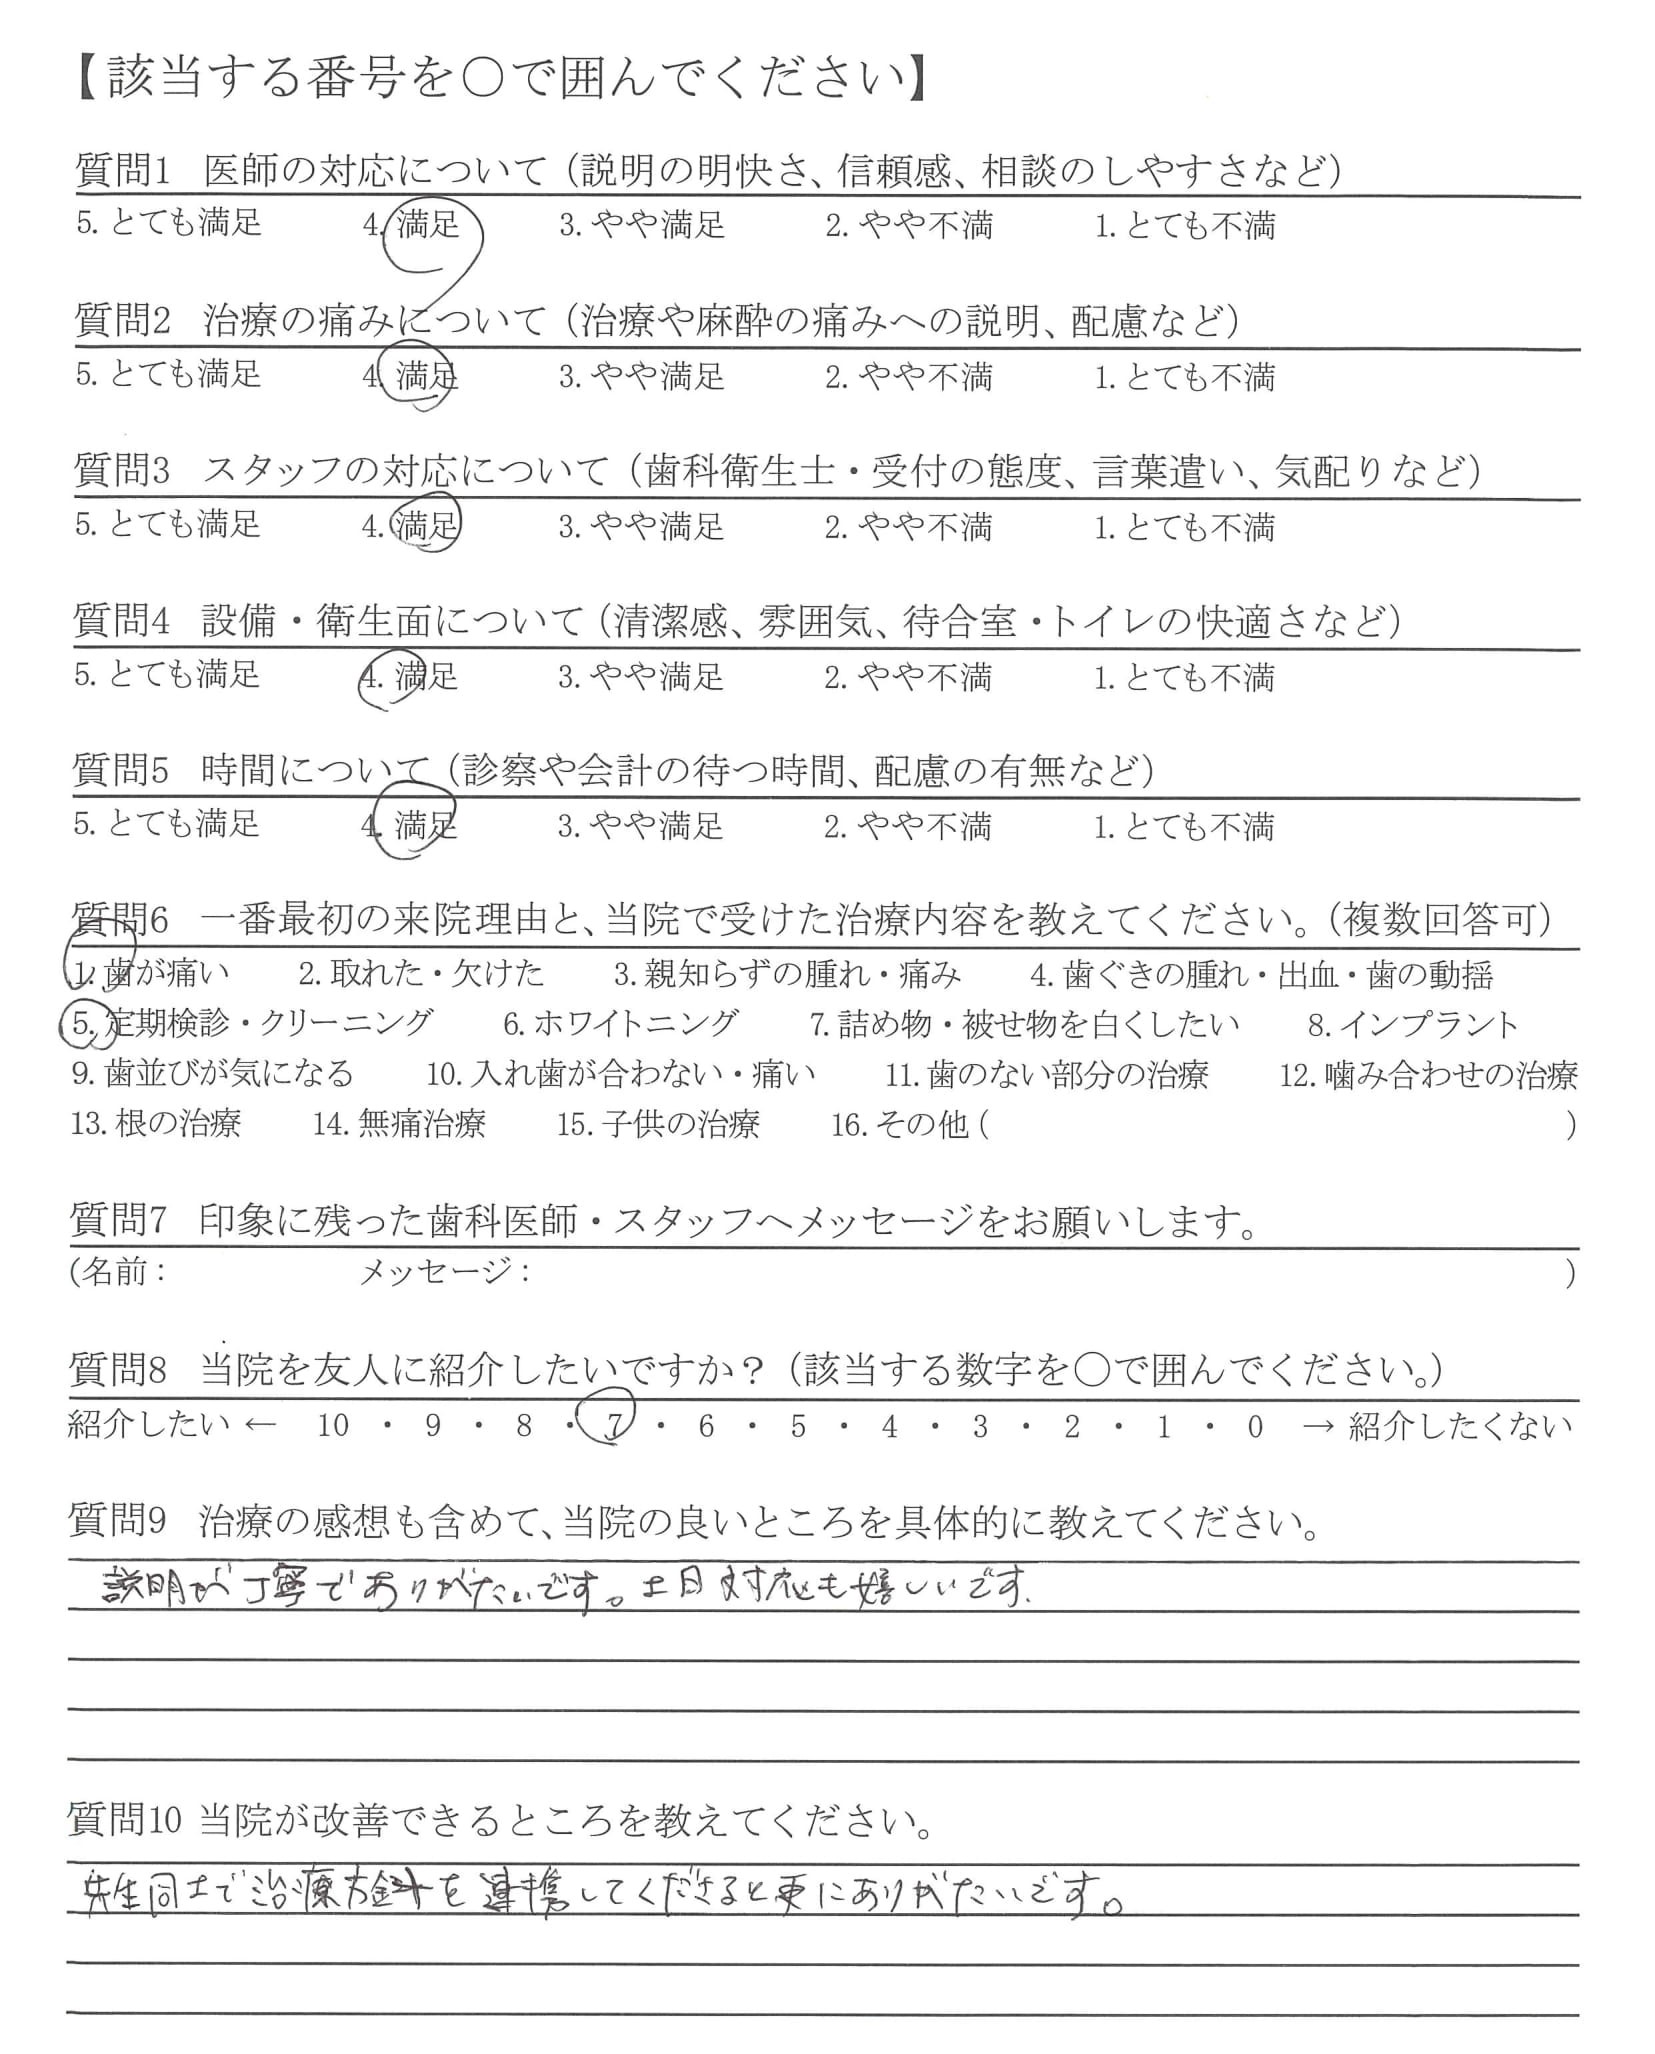 【該当する番号を〇で囲んでください】
質問1 医師の対応について（説明の明快さ、信頼感、相談のしやすさなど）
5. とても満足 4. 満足 3. やや満足 2. やや不満 1. とても不満
質問2 治療の痛みについて（治療や麻酔の痛みへの説明、配慮など）
5. とても満足 4. 満足 3. やや満足 2. やや不満 1. とても不満
質問3 スタッフの対応について（歯科衛生士・受付の態度、言葉遣い、気配りなど）
5. とても満足 4. 満足 3. やや満足 2. やや不満 1. とても不満
質問4 設備・衛生面について（清潔感、雰囲気、待合室・トイレの快適さなど）
5. とても満足 4. 満足 3. やや満足 2. やや不満 1. とても不満
質問5 時間について（診察や会計の待つ時間、配慮の有無など）
5. とても満足 4. 満足 3. やや満足 2. やや不満 1. とても不満
質問6 一番最初の来院理由と、当院で受けた治療内容を教えてください。（複数回答可）
1. 歯が痛い 2. 取れた・欠けた 3. 親知らずの腫れ・痛み 4. 歯ぐきの腫れ・出血・歯の動揺
5. 定期検診・クリーニング 6. ホワイトニング 7. 詰め物・被せ物を白くしたい 8. インプラント
9. 歯並びが気になる 10. 入れ歯が合わない・痛い 11. 歯のない部分の治療 12. 噛み合わせの治療
13. 根の治療 14. 無痛治療 15. 子供の治療 16. その他 ( )
質問7 印象に残った歯科医師・スタッフへメッセージをお願いします。
(名前： メッセージ： )
質問8 当院を友人に紹介したいですか？（該当する数字を〇で囲んでください。）
紹介したい ← 10 ・ 9 ・ 8 ・ 7 ・ 6 ・ 5 ・ 4 ・ 3 ・ 2 ・ 1 ・ 0 → 紹介したくない
質問9 治療の感想も含めて、当院の良いところを具体的に教えてください。
説明が丁寧でありがたいです。土日対応も嬉しいです.
質問10 当院が改善できるところを教えてください。
先生同士で治療方針を連携してくださると更にありがたいです。